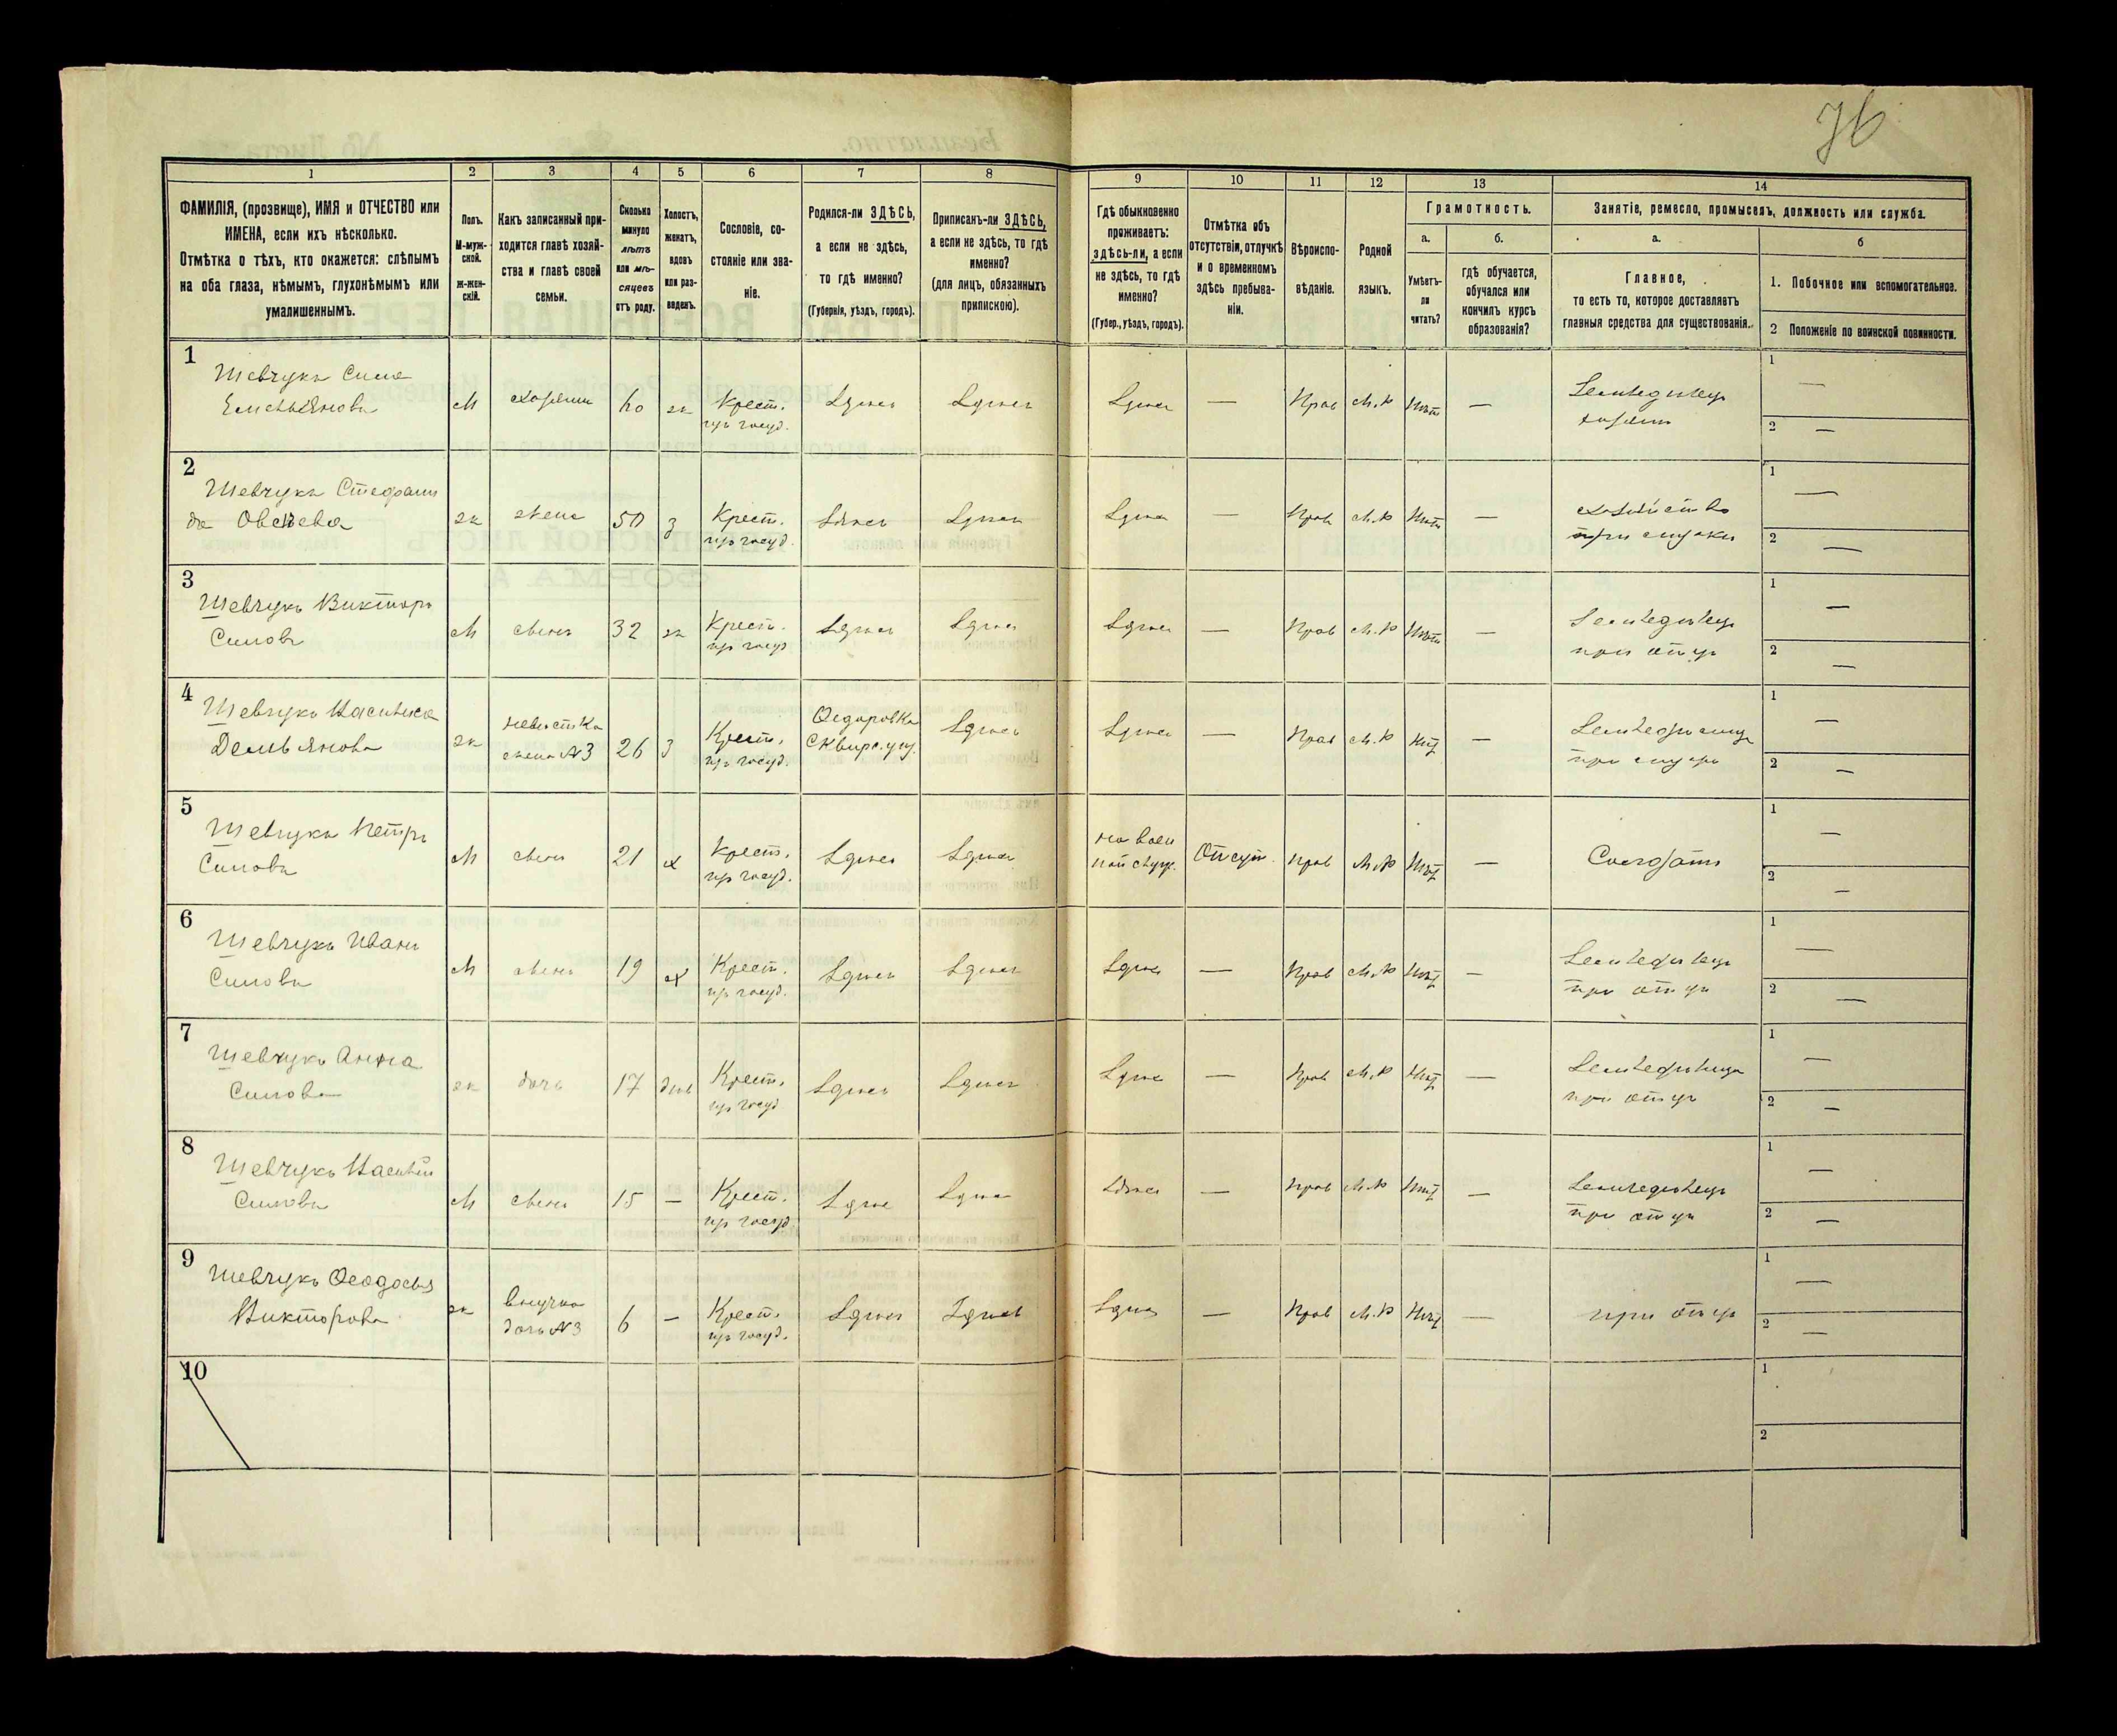 76
1 2 3 4 5 6 7 8 9 10 11 12 13 14
ФАМИЛІЯ, (прозвище), ИМЯ и ОТЧЕСТВО или
ИМЕНА, если ихъ нѣсколько.
Отмѣтка о тѣхъ, кто окажется: слѣпымъ
на оба глаза, нѣмымъ, глухонѣмымъ или
умалишеннымъ.
Полъ.
М-муж-
ской.
Ж-жен-
скій.
Какъ записанный при-
ходится главѣ хозяй-
ства и главѣ своей
семьи.
Сколько
минуло
лѣтъ
или мѣ-
сяцевъ
отъ роду.
Холостъ,
женатъ,
вдовъ
или раз-
веденъ.
Сословіе, со-
стояніе или зва-
ніе.
Родился-ли ЗДѢСЬ,
а если не здѣсь,
то гдѣ именно?
(Губернія, уѣздъ, городъ).
Приписанъ-ли ЗДѢСЬ,
а если не здѣсь, то гдѣ
именно?
(для лицъ, обязанныхъ
припискою).
Гдѣ обыкновенно
проживаетъ:
здѣсь-ли, а если
не здѣсь, то гдѣ
именно?
(Губер., уѣздъ, городъ).
Отмѣтка объ
отсутствіи, отлучкѣ
и о временномъ
здѣсь пребыва-
ніи.
Вѣроиспо-
вѣданіе.
Родной
языкъ.
Грамотность.
а.
Умѣетъ-
ли
читать?
б.
гдѣ обучается,
обучался или
кончилъ курсъ
образованія?
Занятіе, ремесло, промыселъ, должность или служба.
а.
Главное,
то есть то, которое доставляетъ
главныя средства для существованія.
б
1. Побочное или вспомогательное.
2 Положеніе по воинской повинности.
1
Шевчукъ Сила
Емельяновъ
М хозяинъ 60 ж Крест.
из госуд.
Здѣсь Здѣсь Здѣсь — Прав М.Р Нѣт —
Земледѣлецъ
хозяин
1 —
2 —
2
Шевчукъ Стефани
да Овсѣева
ж жена 50 з Крест.
из госуд.
Здѣсь Здѣсь Здѣсь — Прав М.Р Нѣт —
хозяйство
при мужѣ
1 —
2 —
3
Шевчукъ Викторъ
Силовъ
М сынъ 32 ж Крест.
из госуд
Здѣсь Здѣсь Здѣсь — Прав М.Р Нѣт —
Земледѣлецъ
при отцѣ
1 —
2 —
4
Шевчукъ
Демьянова
ж невѣстка
жена №3
26 з Крест.
из госуд.
Ѳедоровка
Сквирс. уѣз.
Здѣсь Здѣсь — Прав М.Р Нѣт —
при мужѣ
1 —
2 —
5
Шевчукъ Петръ
Силовъ
М сынъ 21 х Крест.
из госуд.
Здѣсь Здѣсь
на воен
ной служ.
Отсут. Прав М.Р Нѣт —
Солдатъ
1 —
2 —
6
Шевчукъ Иванъ
Силовъ
М сынъ 19 х Крест.
из госуд.
Здѣсь Здѣсь Здѣсь — Прав М.Р Нѣт —
Земледѣлецъ
при отцѣ
1 —
2 —
7
Шевчукъ Анна
Силова
ж дочь 17 дѣв Крест.
из госуд
Здѣсь Здѣсь Здѣсь — Прав М.Р Нѣт —
при отцѣ
1 —
2 —
8
Шевчукъ
Силовъ
М сынъ 15 — Крест.
из госуд
Здѣсь Здѣсь Здѣсь — Прав М.Р Нѣт —
Земледѣлецъ
при отцѣ
1 —
2 —
9
Шевчукъ Ѳеодосья
Викторова
ж внучка
дочь №3
6 — Крест.
из госуд.
Здѣсь Здѣсь Здѣсь — Прав М.Р Нѣт —
при отцѣ
1 —
2 —
10
1
2